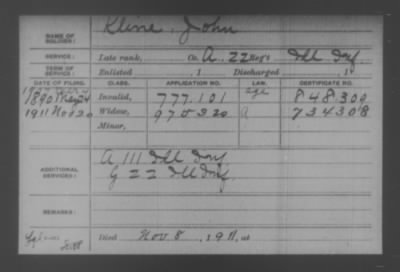 NAME OF SOLDIER: Kline, John
SERVICE: Late rank, Co. A, 22 Reg't Ill Inf.
TERM OF SERVICE: Enlisted , 1 Discharged , 1
DATE OF FILING. CLASS. APPLICATION NO. LAW. CERTIFICATE NO.
1890 Invalid, 777.101 age 848.309
1911 Nov 20 Widow, 975320 A 734308
Minor,
ADDITIONAL SERVICES: A 111 Ill Inf
G 22 Ill Inf.
REMARKS:
Died Nov 8, 1911, at